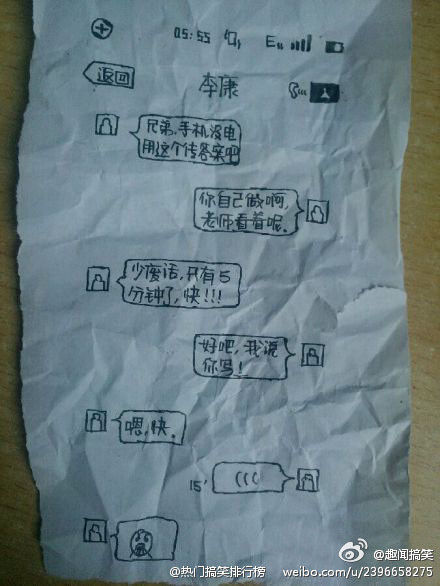 05:55 E
返回
李康
兄弟,手机没电
用这个传答案吧
你自己做啊,
老师看着呢.
少废话,只有5
分钟了,快!!!
好吧,我说
你写!
嗯,快.
15'
(((
@趣闻搞笑
@热门搞笑排行榜 weibo.com/u/2396658275